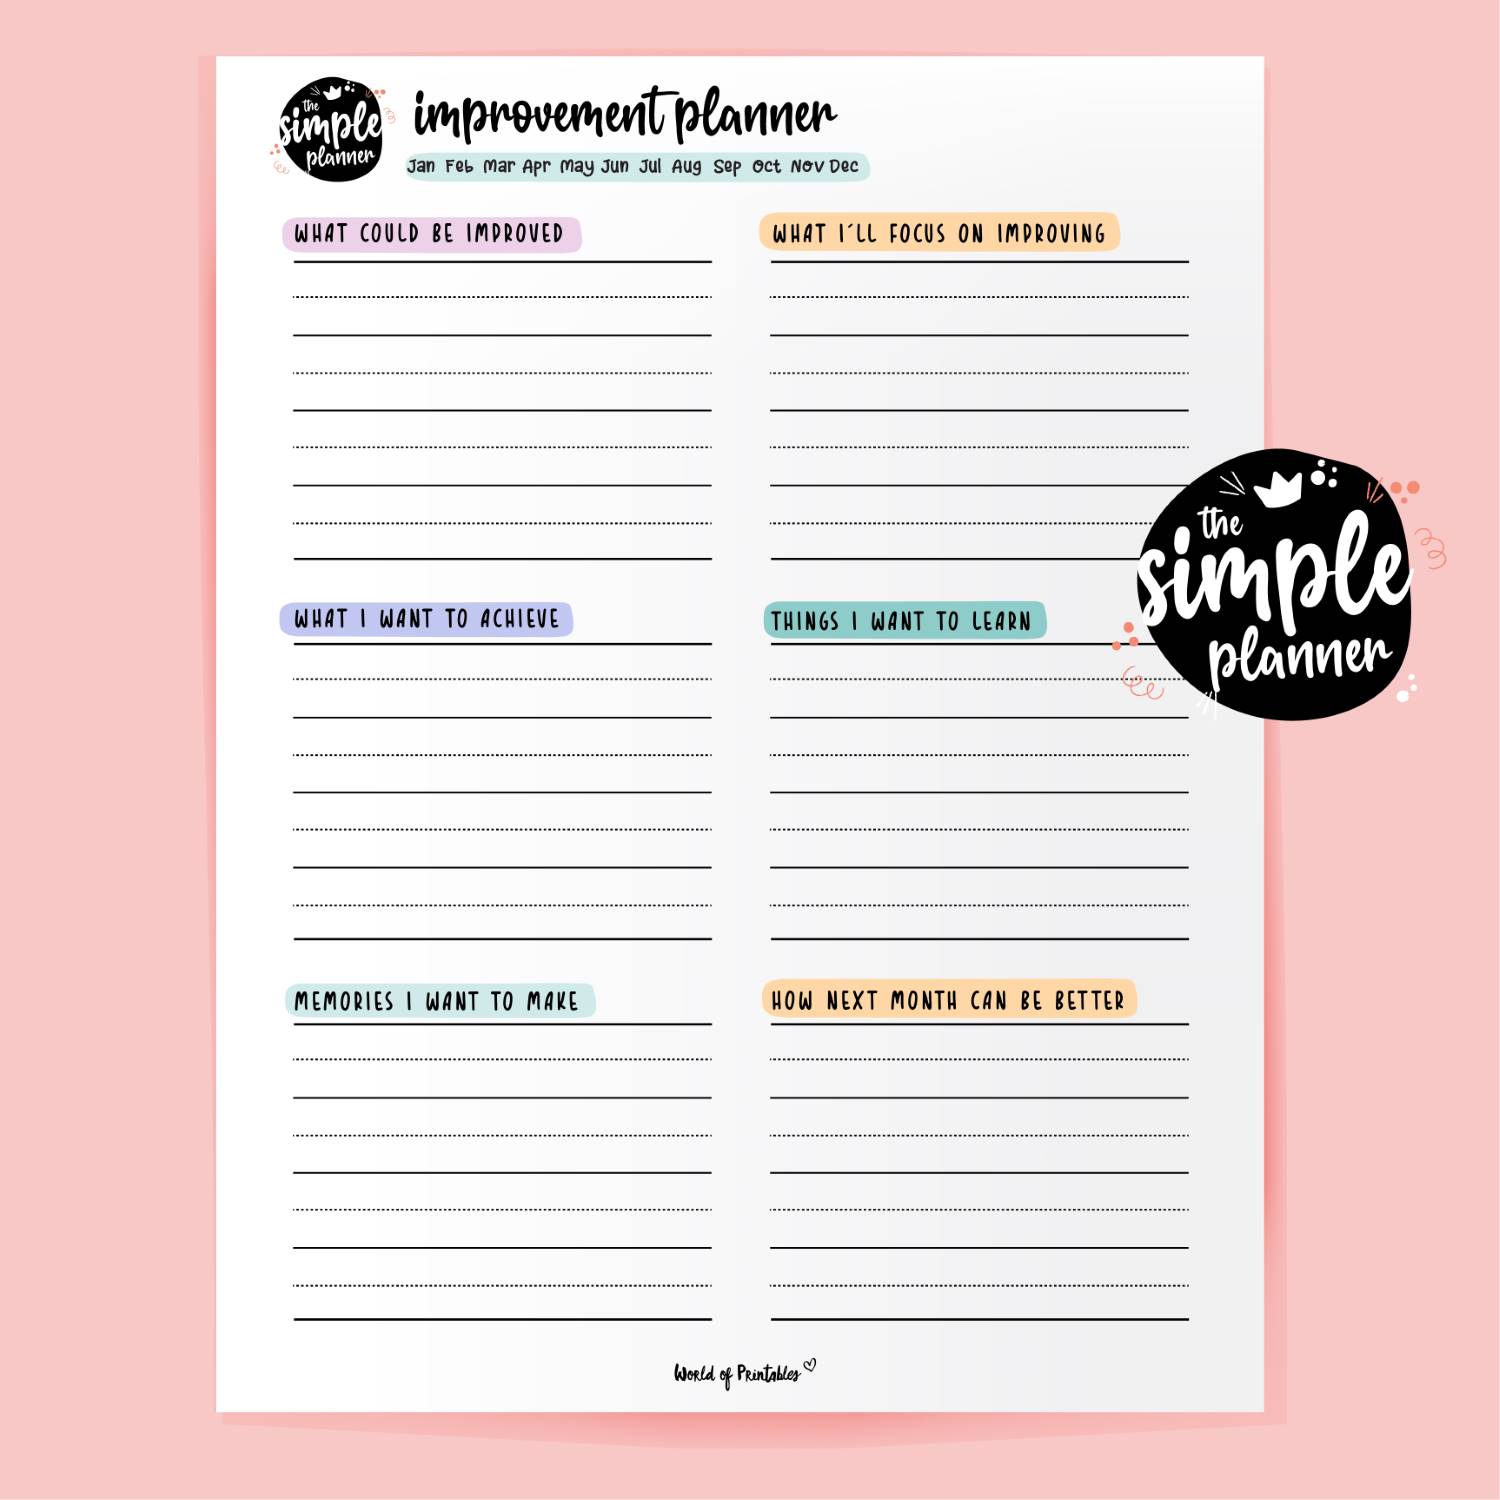 the
simple
planner
improvement planner
Jan Feb Mar Apr May Jun Jul Aug Sep Oct Nov Dec
WHAT COULD BE IMPROVED
WHAT I´LL FOCUS ON IMPROVING
WHAT I WANT TO ACHIEVE
THINGS I WANT TO LEARN
MEMORIES I WANT TO MAKE
HOW NEXT MONTH CAN BE BETTER
the
simple
planner
World of Printables